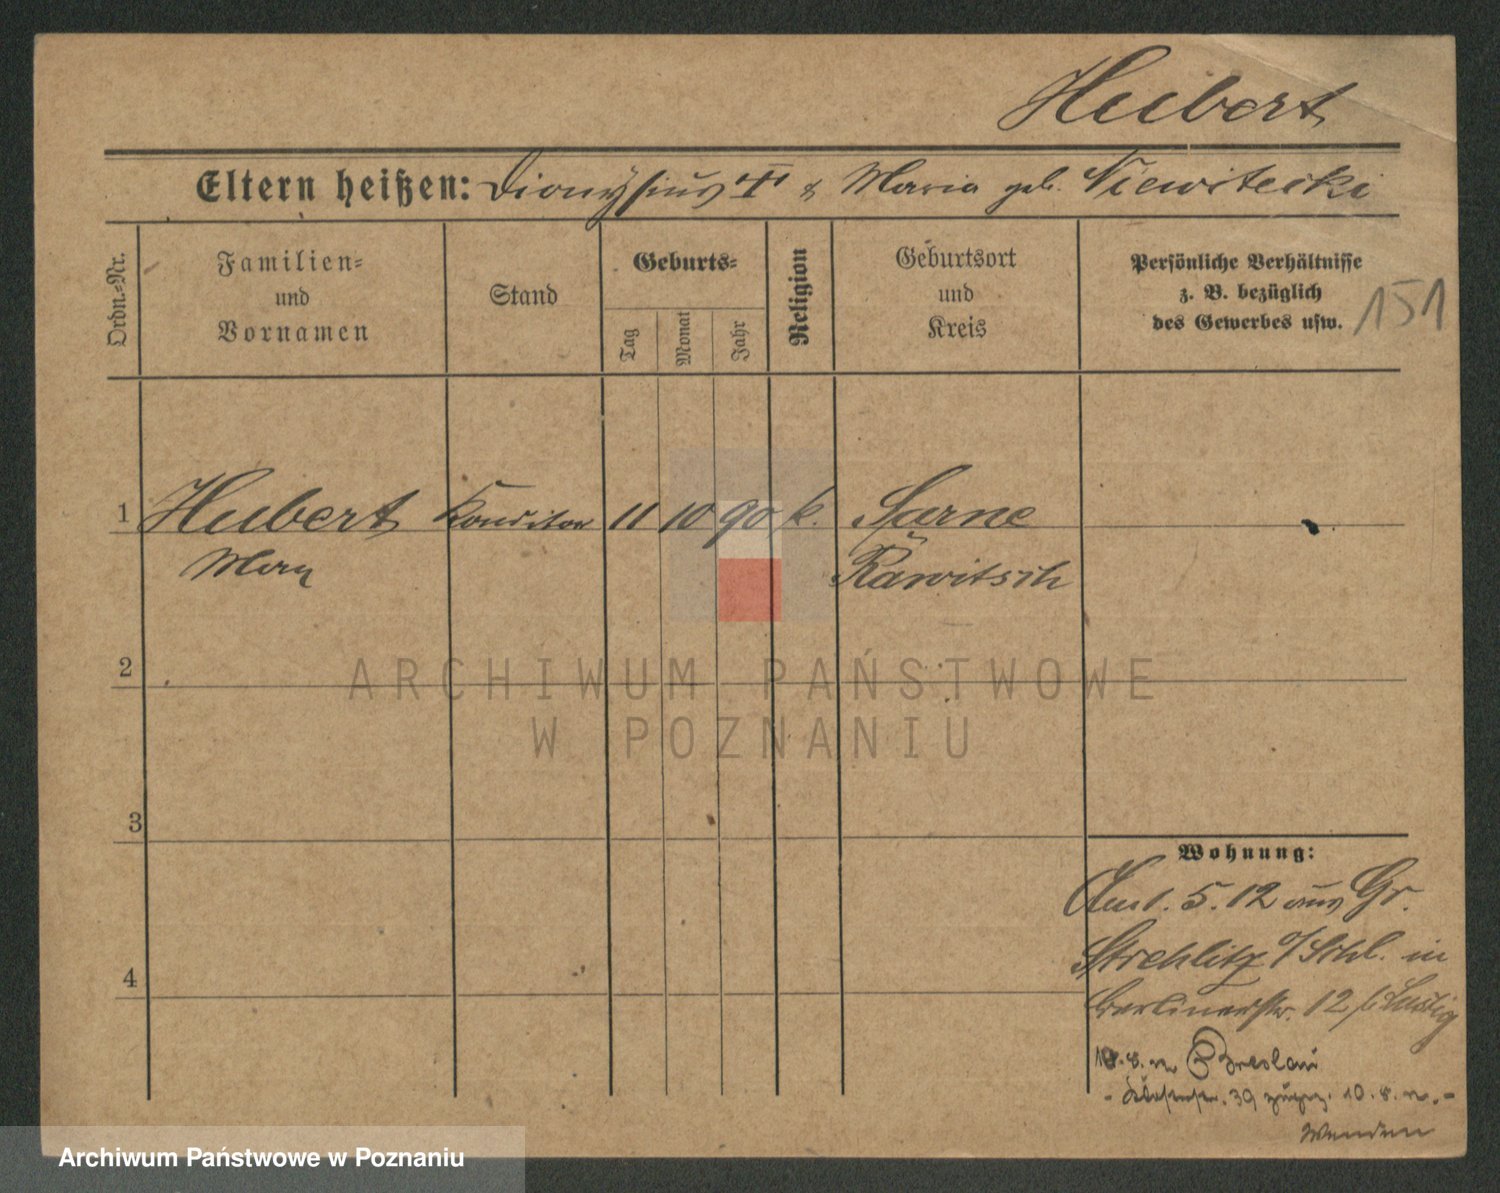 Hubert
Eltern heißen: Dionysius & Maria geb. Niewitecki
Ordn.=Nr.
Familien=
und
Vornamen
Stand
Geburts=
Tag
Monat
Jahr
Religion
Geburtsort
und
Kreis
Persönliche Verhältnisse
z. B. bezüglich
des Gewerbes usw.
151
1 Hubert Konditor 11 10 90 k. Sarne
Max Rawitsch
2
ARCHIWUM PAŃSTWOWE
W POZNANIU
3
Wohnung:
5. 12 aus Gr.
Strehlitz o/Schl. in
4
Berlinerstr. 12 b/
8. Breslau
39 10. 8.
Wenden
Archiwum Państwowe w Poznaniu